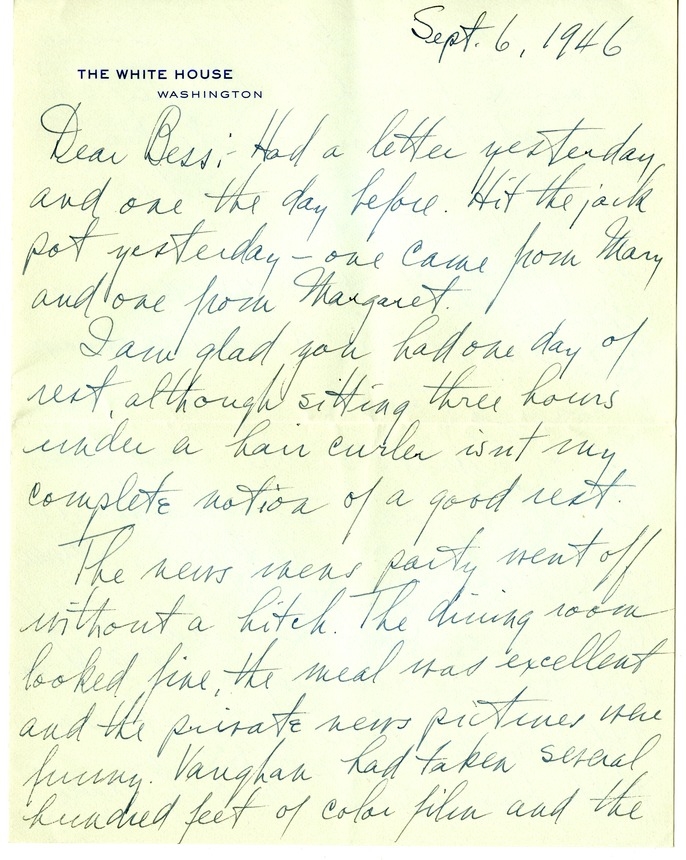 Sept. 6, 1946
THE WHITE HOUSE
WASHINGTON
Dear Bess:- Had a letter yesterday
and one the day before. Hit the jack
pot yesterday - one came from Mary
and one from Margaret.
I am glad you had one day of
rest, although sitting three hours
under a hair curler isn't my
complete notion of a good rest.
The news mens party went off
without a hitch. The dining room
looked fine, the meal was excellent
and the private news pictures were
funny. Vaughan had taken several
hundred feet of color film and the